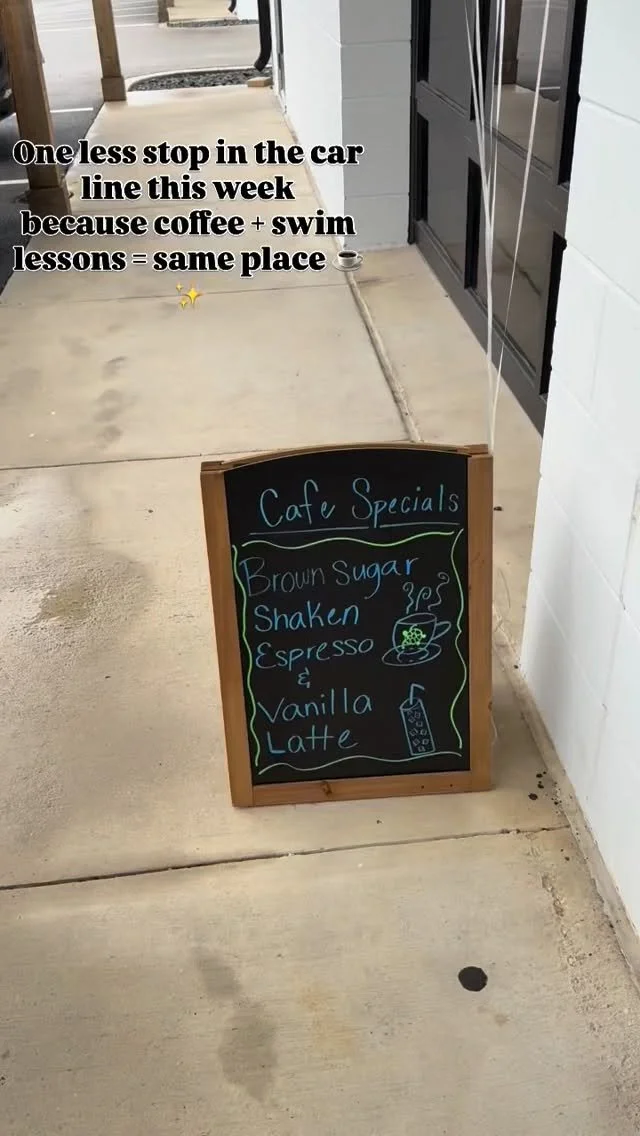 One less stop in the car
line this week
because coffee + swim
lessons = same place ☕
✨
Cafe Specials
Brown Sugar
Shaken
Espresso
&
Vanilla
Latte